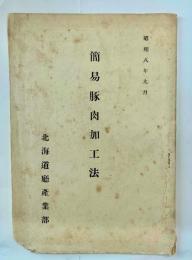 昭和八年九月
簡易豚肉加工法
北海道廳產業部